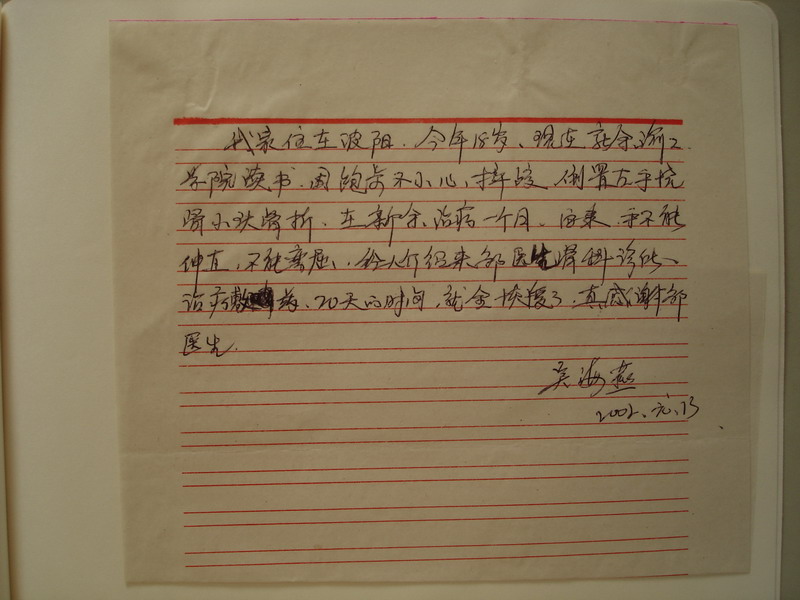 我家住在波阳.今年18岁、现在新余渝工
学院读书.因跑步不小心,摔跤 倒置左手挠
骨小头骨折.在新余治病一个月.后来 手不能
伸直,不能弯屈、经人介绍来邹医生骨科诊所、
治病敷 药、20天的时间,就全恢复了.真感谢邹
医生.
吴海燕
2002.元.13